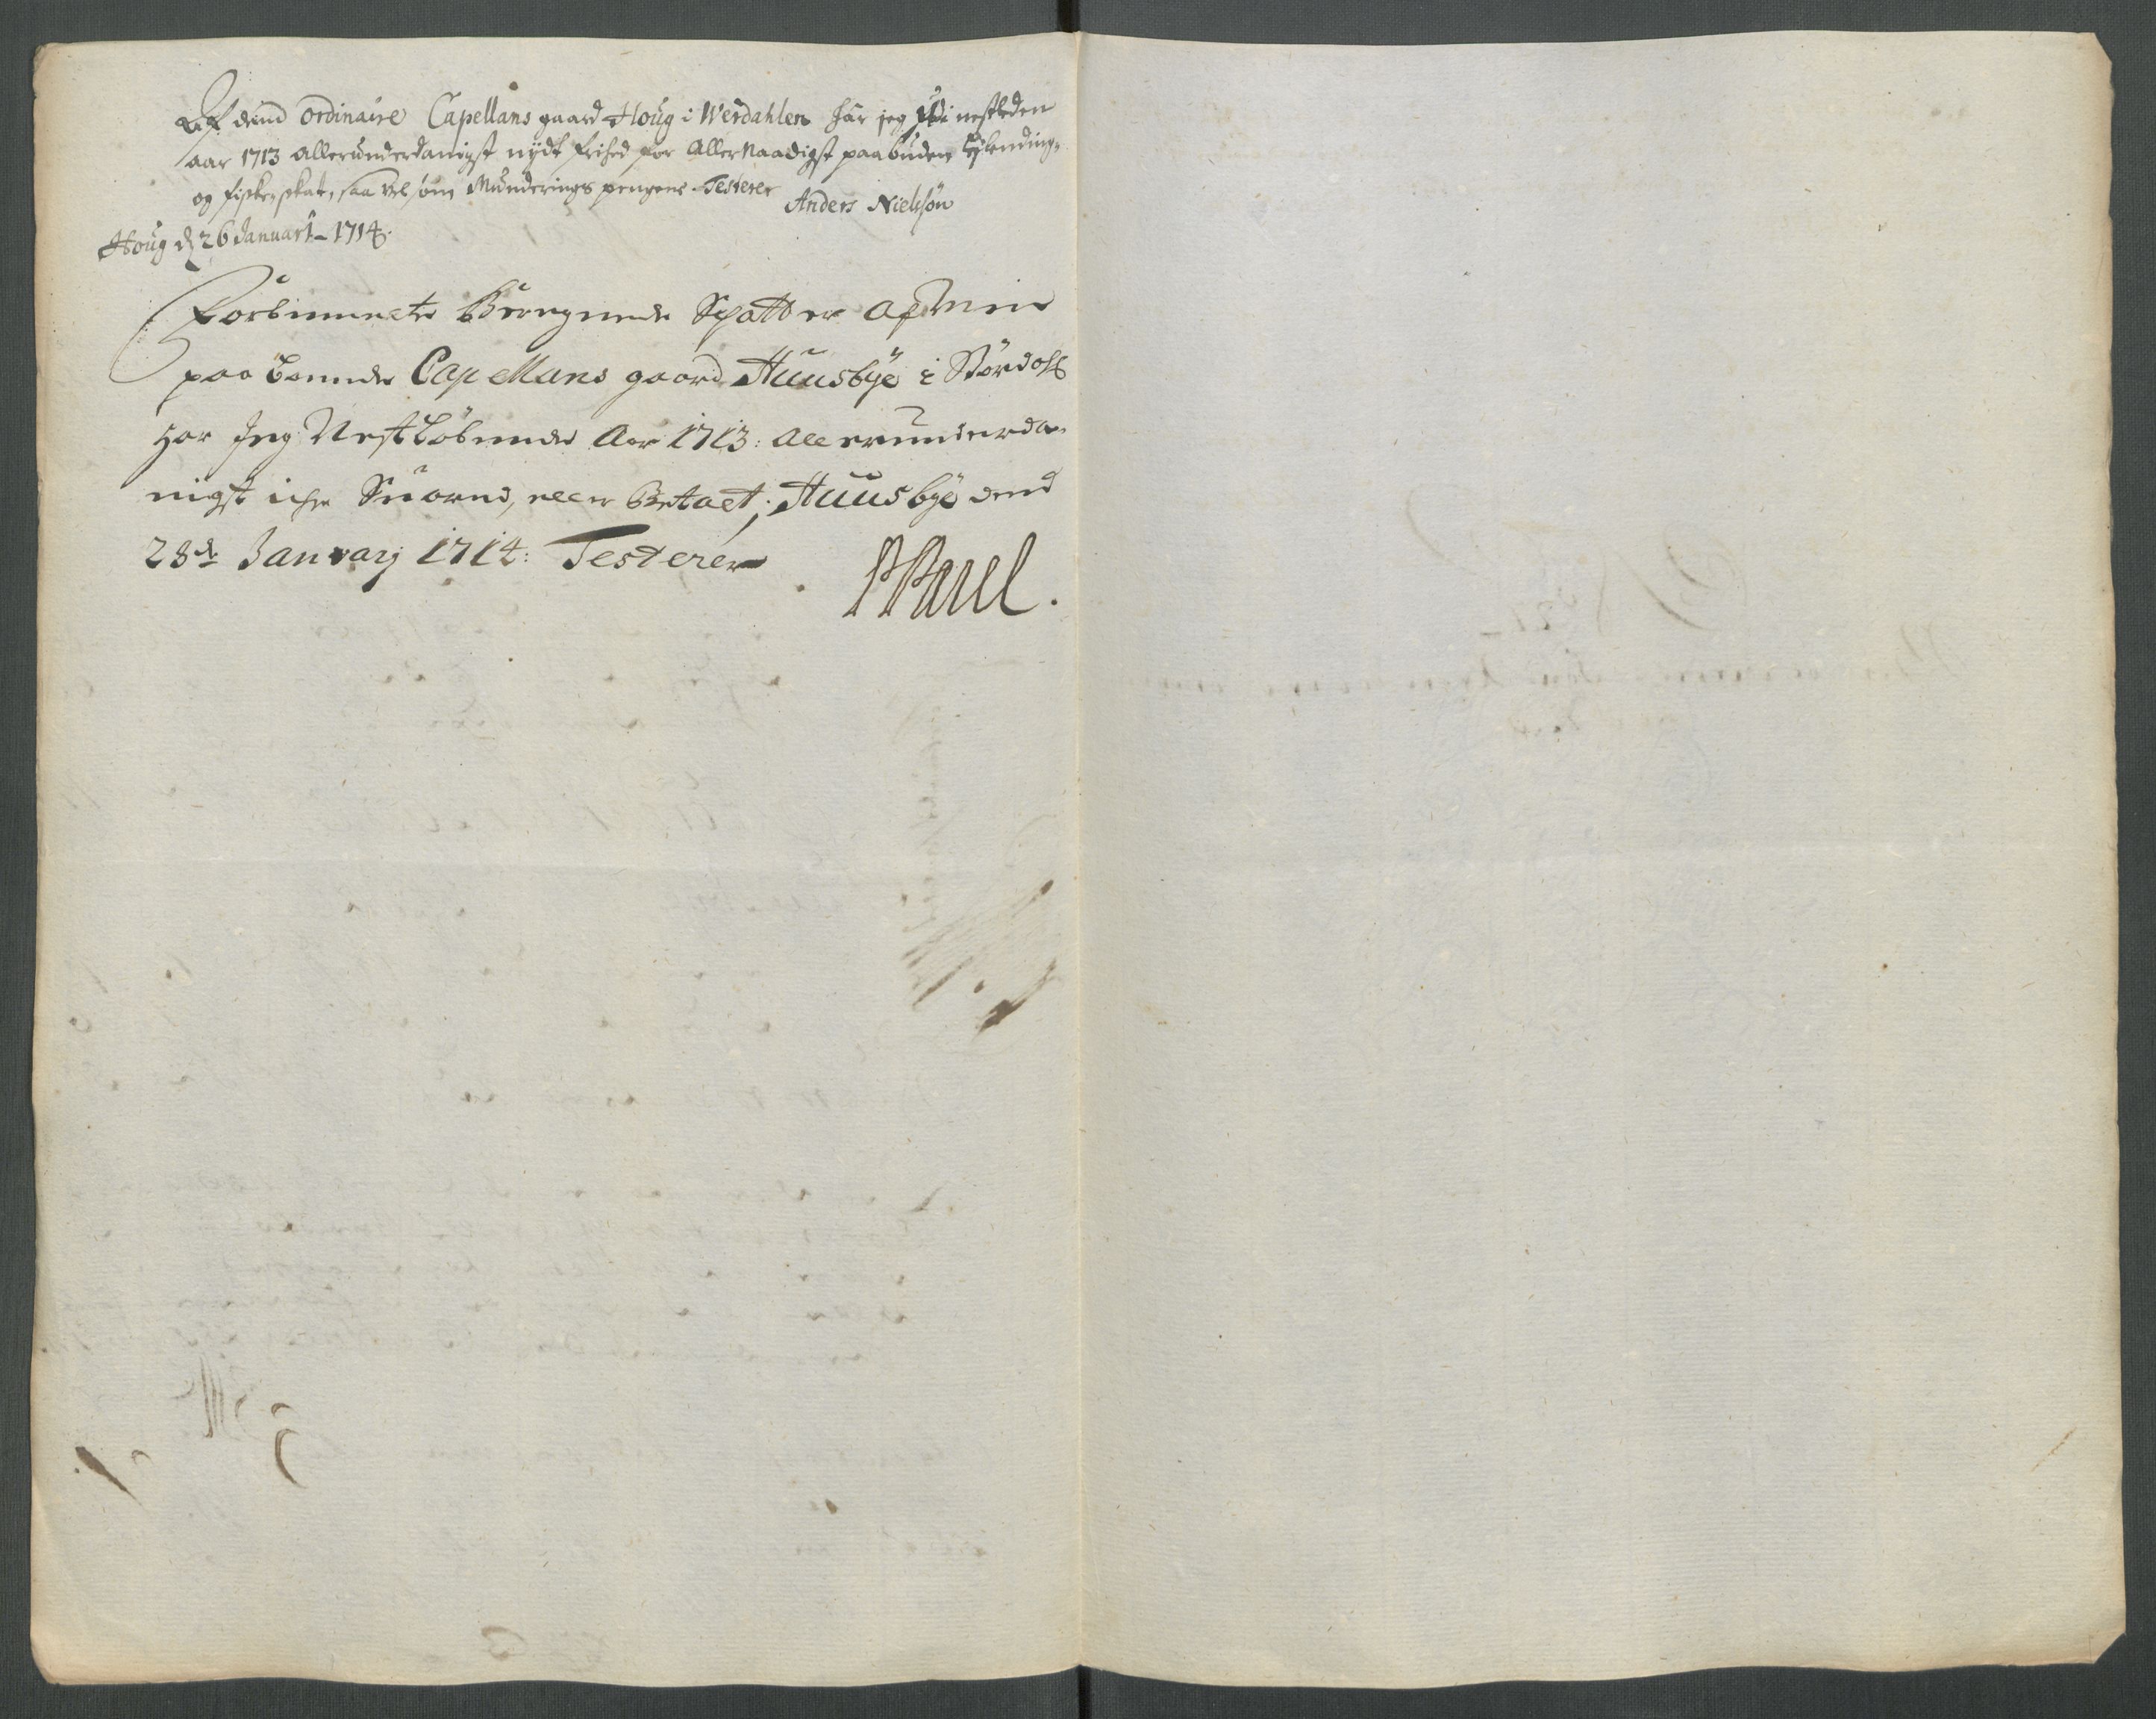 Af dend ordinaire Capellans gaard Houg i Werdahlen har jeg udi nestleden
aar 1713 allerunderdanigst nydt frihed for allernaadigst paabuden
og fiskeskat, saa vel som Munderings pengene Testerer
Anders Nielsøn
Houg d 26 Januari 1714.
Forbemeelte Beregnede Skatter af Min
paa boende Capellans gaard Huusbye i Størdahl
har Jeg Nest Løbende Aar 1713: allerunderda-
nigst iche Suared, eller Betalt; Huusbye dend
28de January 1714: Testerer